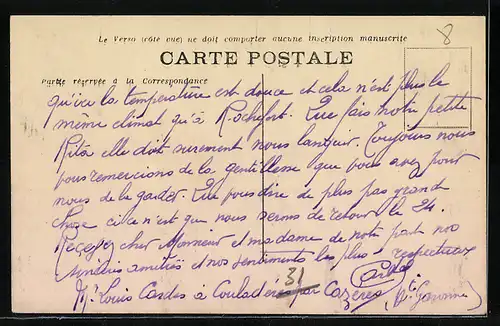 Le Verso (côté vue) ne doit comporter aucune inscription manuscrite
8
CARTE POSTALE
Partie réservée à la Correspondance
qu'ici la température est douce et cela n'est plus le
même climat qu'à Rochefort. Que fais notre petite
Rita elle doit surement nous languir. Toujours nous
vous remercions de la gentillesse que vous avez pour
nous de la garder. Que vous dire de plus pas grand
chose si ce n'est que nous serons de retour le 24.
Recevez cher Monsieur et madame de notre part nos
amitiés et nos sentiments les plus respectueux
31
Mr Louis Cardes à Couladères par Cazères (Hte Garonne)